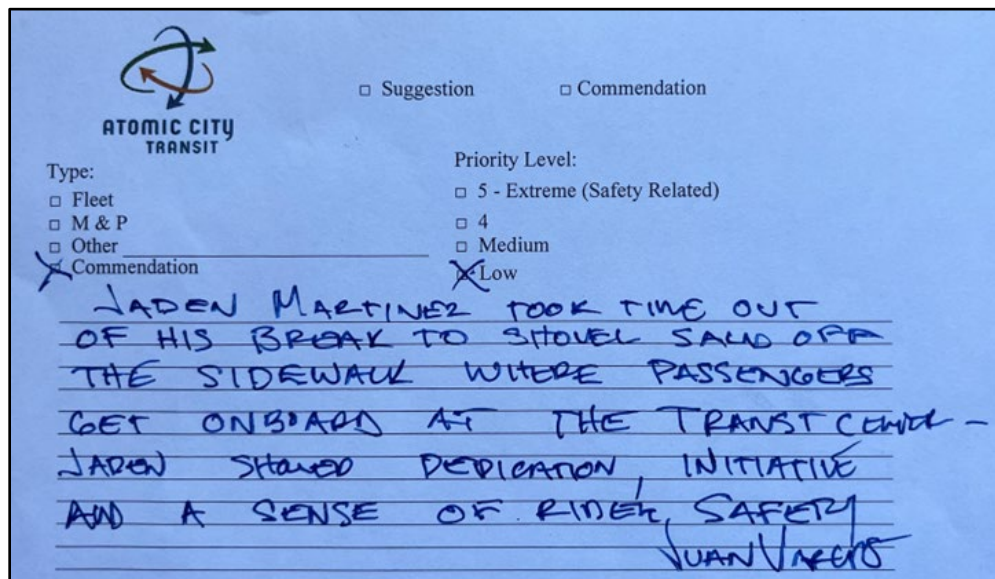 ATOMIC CITY
TRANSIT
□ Suggestion □ Commendation
Type:
□ Fleet
□ M & P
□ Other
□ Commendation
Priority Level:
□ 5 - Extreme (Safety Related)
□ 4
□ Medium
□ Low
JADEN MARTINEZ TOOK TIME OUT
OF HIS BREAK TO SHOVEL SAND OFF
THE SIDEWALK WHERE PASSENGERS
GET ONBOARD AT THE TRANST CENTER -
JADEN SHOWED DEDICATION, INITIATIVE
AND A SENSE OF RIDER SAFETY
JUAN